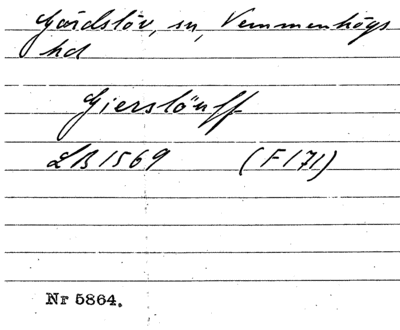 Gärdslöv, sn, Vemmenhögs
hd
Gierslöuff
LB 1569 (F 171)
Nr 5864.